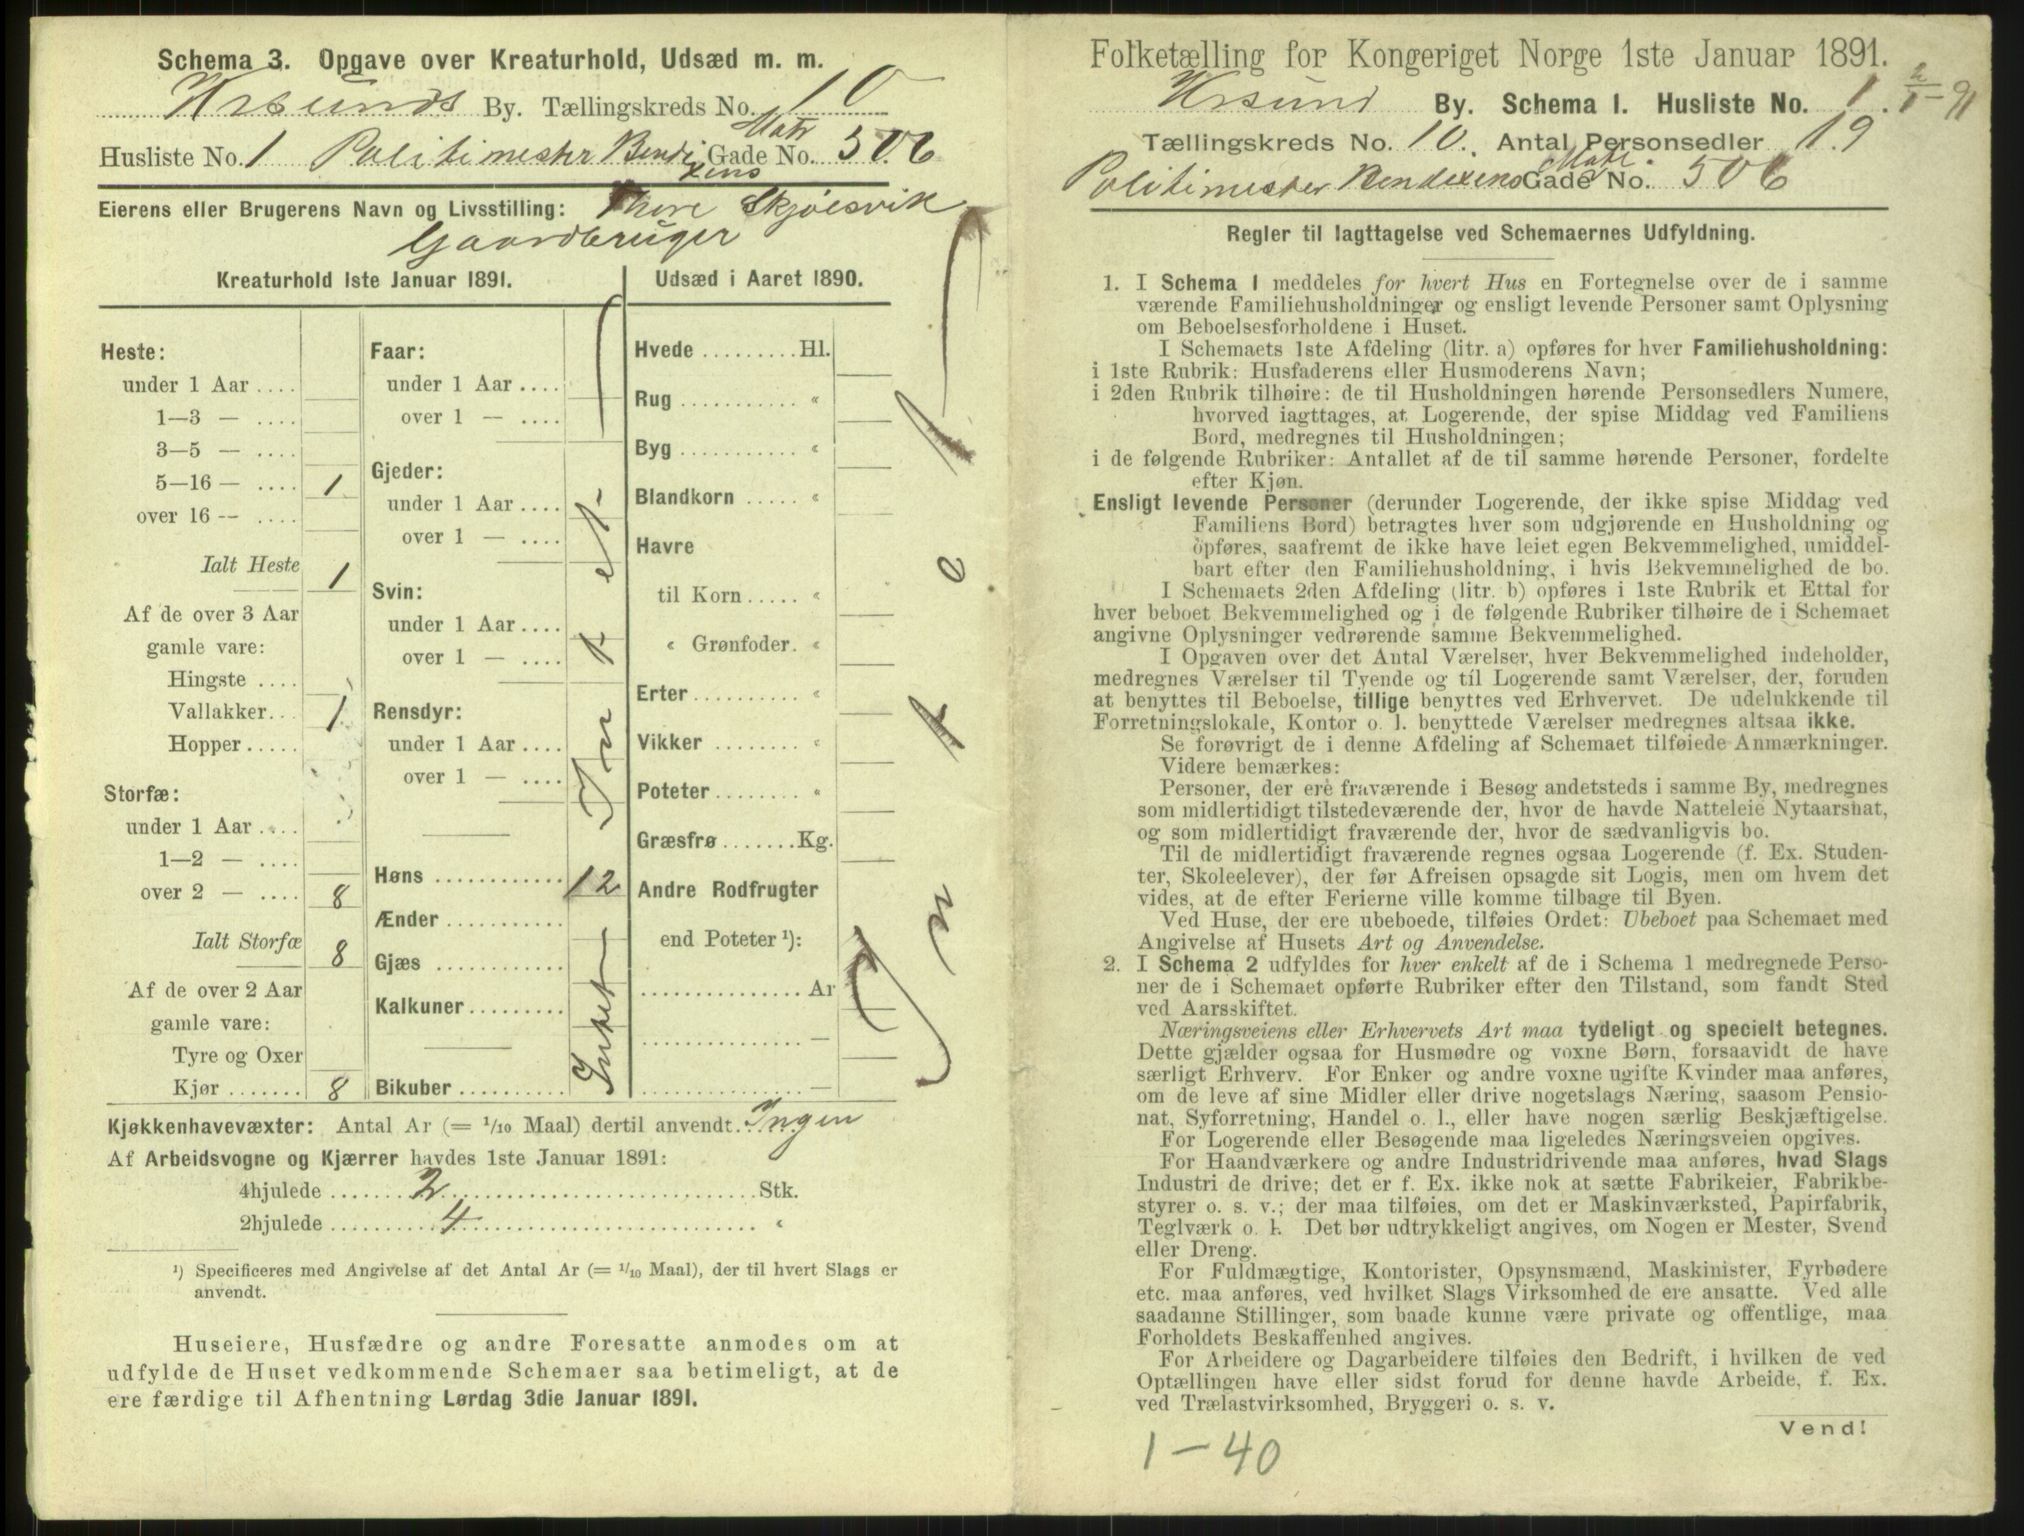 Schema 3. Opgave over Kreaturhold, Udsæd m. m.
Krsunds By. Tællingskreds No. 10
Husliste No. 1 Politimester Bendixens Gade No. Matr 506
Eierens eller Brugerens Navn og Livsstilling: Thore Skjølsvik
Gaardbruger
Kreaturhold 1ste Januar 1891.
Heste:
under 1 Aar ....
1—3 — ....
3—5 — ....
5—16 — .... 1
over 16 -- ....
Ialt Heste 1
Af de over 3 Aar
gamle vare:
Hingste ....
Vallakker... 1
Hopper .....
Storfæ:
under 1 Aar ....
1—2 — ....
over 2 — .... 8
Ialt Storfæ 8
Af de over 2 Aar
gamle vare:
Tyre og Oxer
Kjør ....... 8
Faar:
under 1 Aar ....
over 1 — ....
Gjeder:
under 1 Aar ....
over 1 — ....
Svin:
under 1 Aar ....
over 1 — ....
Rensdyr:
under 1 Aar ....
over 1 — ....
Intet
Høns ............ 12
Ænder ...........
Gjæs ............
Kalkuner .........
Bikuber ..........
Intet
Udsæd i Aaret 1890.
Hvede ......... Hl.
Rug ........... "
Byg ........... "
Blandkorn ..... "
Havre
til Korn ..... "
" Grønfoder. "
Erter ......... "
Vikker ........ "
Poteter ........ "
Græsfrø ....... Kg.
Andre Rodfrugter
end Poteter ¹):
............... Ar
............... —
............... —
Intet
Kjøkkenhavevæxter: Antal Ar (= 1/10 Maal) dertil anvendt. Ingen
Af Arbeidsvogne og Kjærrer havdes 1ste Januar 1891:
4hjulede ....... 2 ....... Stk.
2hjulede ....... 4 ....... "
¹) Specificeres med Angivelse af det Antal Ar (= 1/10 Maal), der til hvert Slags er
anvendt.
Huseiere, Husfædre og andre Foresatte anmodes om at
udfylde de Huset vedkommende Schemaer saa betimeligt, at de
ere færdige til Afhentning Lørdag 3die Januar 1891.
Folketælling for Kongeriget Norge 1ste Januar 1891.
Krsund By. Schema I. Husliste No. 1. 2/1-91
Tællingskreds No. 10. Antal Personsedler 19
Politimester Bendixens Gade No. Matr. 506
Regler til Iagttagelse ved Schemaernes Udfyldning.
1. I Schema I meddeles for hvert Hus en Fortegnelse over de i samme
værende Familiehusholdninger og ensligt levende Personer samt Oplysning
om Beboelsesforholdene i Huset.
I Schemaets 1ste Afdeling (litr. a) opføres for hver Familiehusholdning:
i 1ste Rubrik: Husfaderens eller Husmoderens Navn;
i 2den Rubrik tilhøire: de til Husholdningen hørende Personsedlers Numere,
hvorved iagttages, at Logerende, der spise Middag ved Familiens
Bord, medregnes til Husholdningen;
i de følgende Rubriker: Antallet af de til samme hørende Personer, fordelte
efter Kjøn.
Ensligt levende Personer (derunder Logerende, der ikke spise Middag ved
Familiens Bord) betragtes hver som udgjørende en Husholdning og
opføres, saafremt de ikke have leiet egen Bekvemmelighed, umiddel-
bart efter den Familiehusholdning, i hvis Bekvemmelighed de bo.
I Schemaets 2den Afdeling (litr. b) opføres i 1ste Rubrik et Ettal for
hver beboet Bekvemmelighed og i de følgende Rubriker tilhøire de i Schemaet
angivne Oplysninger vedrørende samme Bekvemmelighed.
I Opgaven over det Antal Værelser, hver Bekvemmelighed indeholder,
medregnes Værelser til Tyende og til Logerende samt Værelser, der, foruden
at benyttes til Beboelse, tillige benyttes ved Erhvervet. De udelukkende til
Forretningslokale, Kontor o. l. benyttede Værelser medregnes altsaa ikke.
Se forøvrigt de i denne Afdeling af Schemaet tilføiede Anmærkninger.
Videre bemærkes:
Personer, der ere fraværende i Besøg andetsteds i samme By, medregnes
som midlertidigt tilstedeværende der, hvor de havde Natteleie Nytaarsnat,
og som midlertidigt fraværende der, hvor de sædvanligvis bo.
Til de midlertidigt fraværende regnes ogsaa Logerende (f. Ex. Studen-
ter, Skoleelever), der før Afreisen opsagde sit Logis, men om hvem det
vides, at de efter Ferierne ville komme tilbage til Byen.
Ved Huse, der ere ubeboede, tilføies Ordet: Ubeboet paa Schemaet med
Angivelse af Husets Art og Anvendelse.
2. I Schema 2 udfyldes for hver enkelt af de i Schema 1 medregnede Perso-
ner de i Schemaet opførte Rubriker efter den Tilstand, som fandt Sted
ved Aarsskiftet.
Næringsveiens eller Erhvervets Art maa tydeligt og specielt betegnes.
Dette gjælder ogsaa for Husmødre og voxne Børn, forsaavidt de have
særligt Erhverv. For Enker og andre voxne ugifte Kvinder maa anføres,
om de leve af sine Midler eller drive nogetslags Næring, saasom Pensio-
nat, Syforretning, Handel o. l., eller have nogen særlig Beskjæftigelse.
For Logerende eller Besøgende maa ligeledes Næringsveien opgives.
For Haandværkere og andre Industridrivende maa anføres, hvad Slags
Industri de drive; det er f. Ex. ikke nok at sætte Fabrikeier, Fabrikbe-
styrer o. s. v.; der maa tilføies, om det er Maskinværksted, Papirfabrik,
Teglværk o. l. Det bør udtrykkeligt angives, om Nogen er Mester, Svend
eller Dreng.
For Fuldmægtige, Kontorister, Opsynsmænd, Maskinister, Fyrbødere
etc. maa anføres, ved hvilket Slags Virksomhed de ere ansatte. Ved alle
saadanne Stillinger, som baade kunne være private og offentlige, maa
Forholdets Beskaffenhed angives.
For Arbeidere og Dagarbeidere tilføies den Bedrift, i hvilken de ved
Optællingen have eller sidst forud for denne havde Arbeide, f. Ex.
ved Trælastvirksomhed, Bryggeri o. s. v.
Vend!
1-40